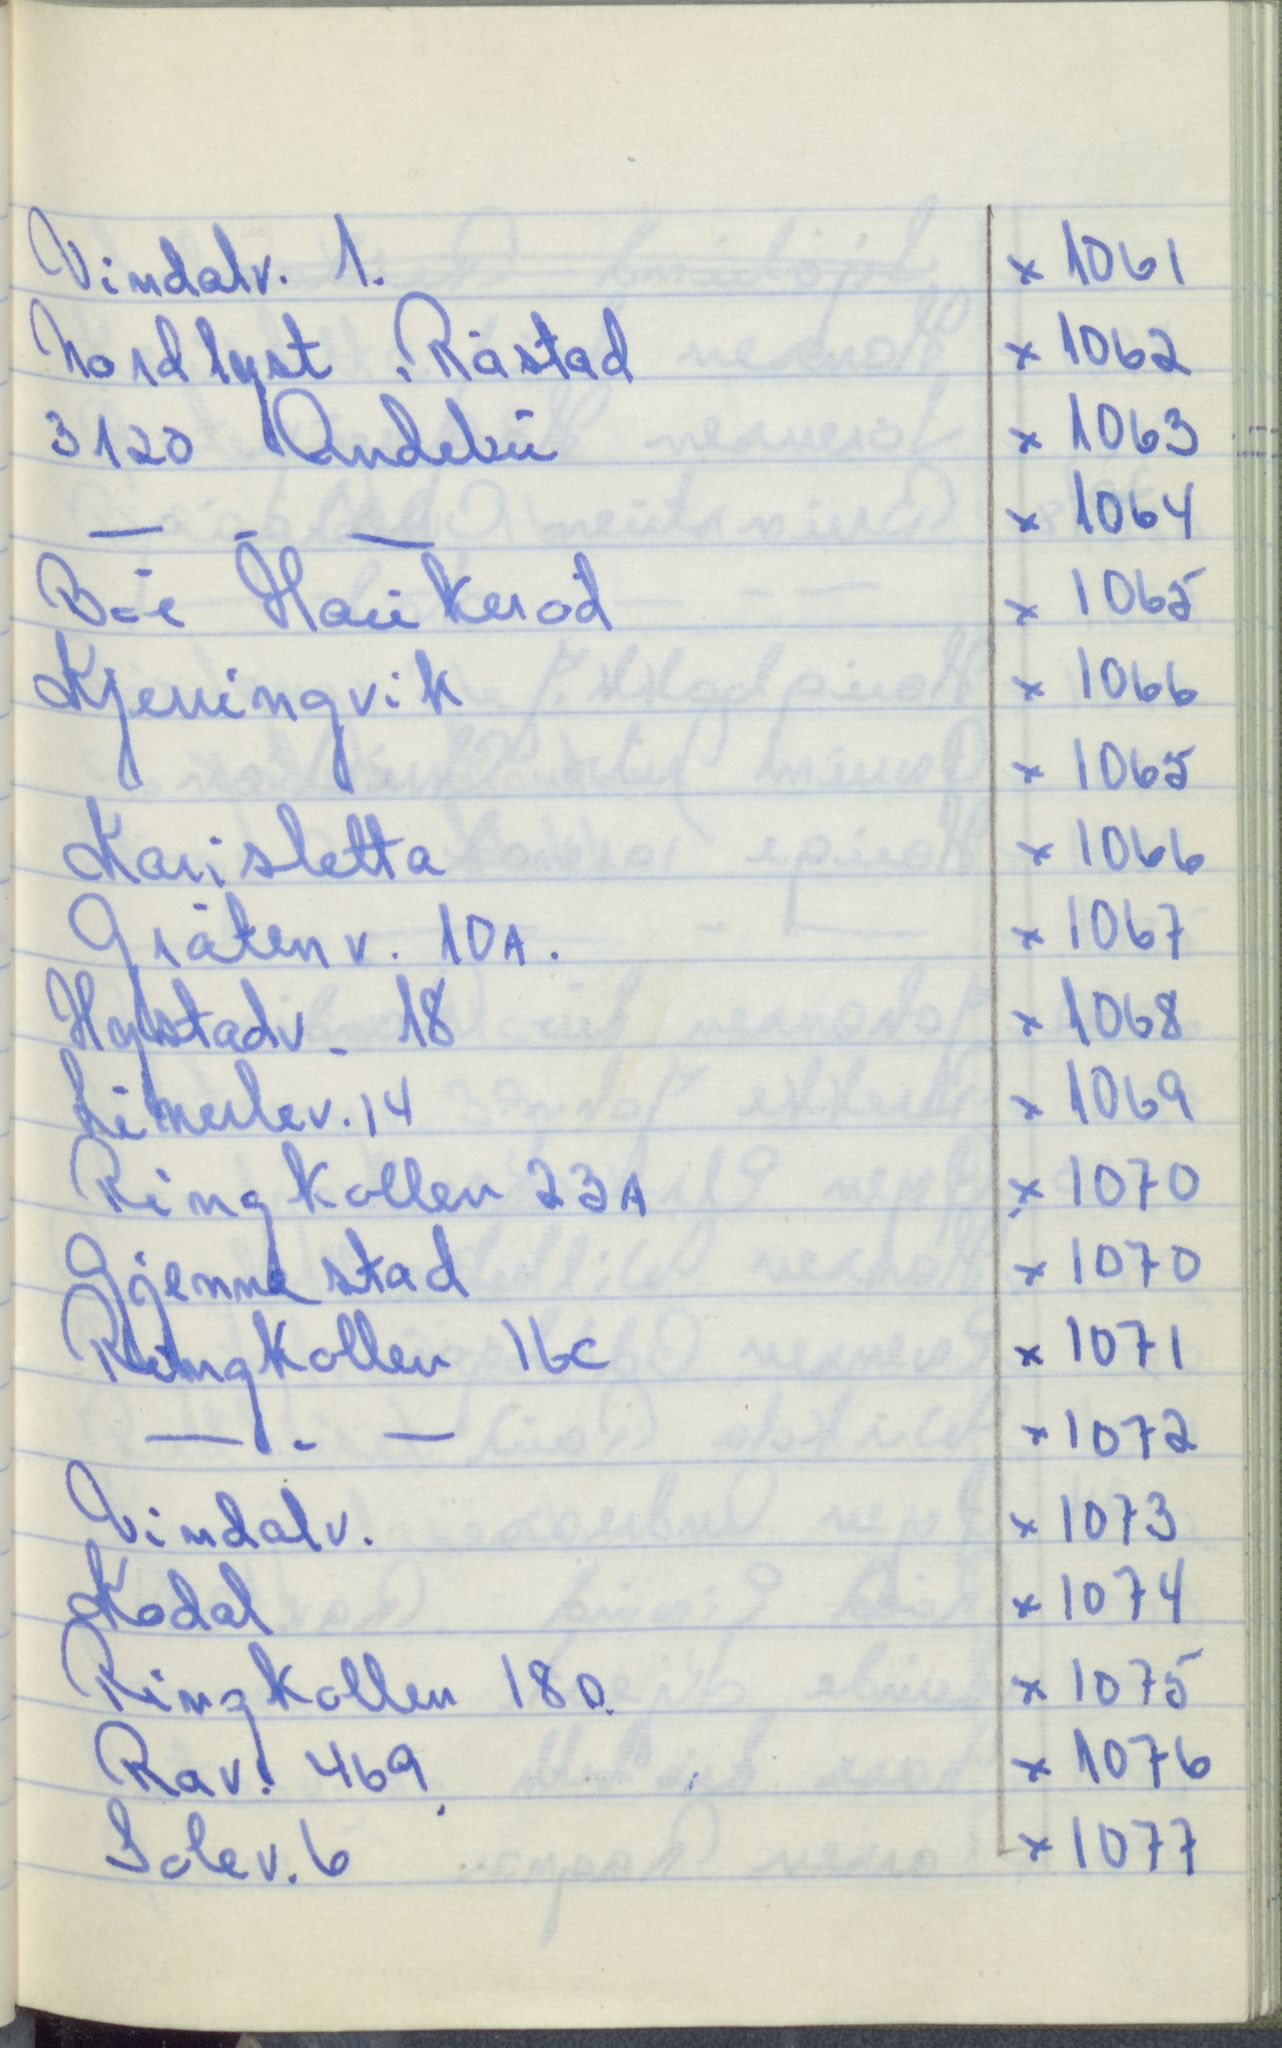 Vindalv. 1. x 1061
Nordlyst, Råstad x 1062
3120 Andebu x 1063
— - — x 1064
Bøe Haukerød x 1065
Kjerringvik x 1066
x 1065
Karisletta x 1066
Gråtenv. 10A. x 1067
Hystadv. 18 x 1068
Linerlev. 14 x 1069
Ringkollen 23A x 1070
Gjennestad x 1070
Ringkollen 16c x 1071
— - — x 1072
Vindalv. x 1073
Kodal x 1074
Ringkollen 18D. x 1075
Rav. 469 x 1076
Solev. 6 x 1077